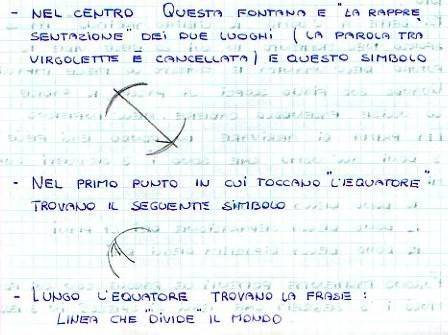 - NEL CENTRO QUESTA FONTANA E "LA RAPPRE
SENTAZIONE" DEI DUE LUOGHI ( LA PAROLA TRA
VIRGOLETTE È CANCELLATA) E QUESTO SIMBOLO
- NEL PRIMO PUNTO IN CUI TOCCANO "L'EQUATORE"
TROVANO IL SEGUENTE SIMBOLO
- LUNGO L'EQUATORE TROVANO LA FRASE :
LINEA CHE "DIVIDE" IL MONDO